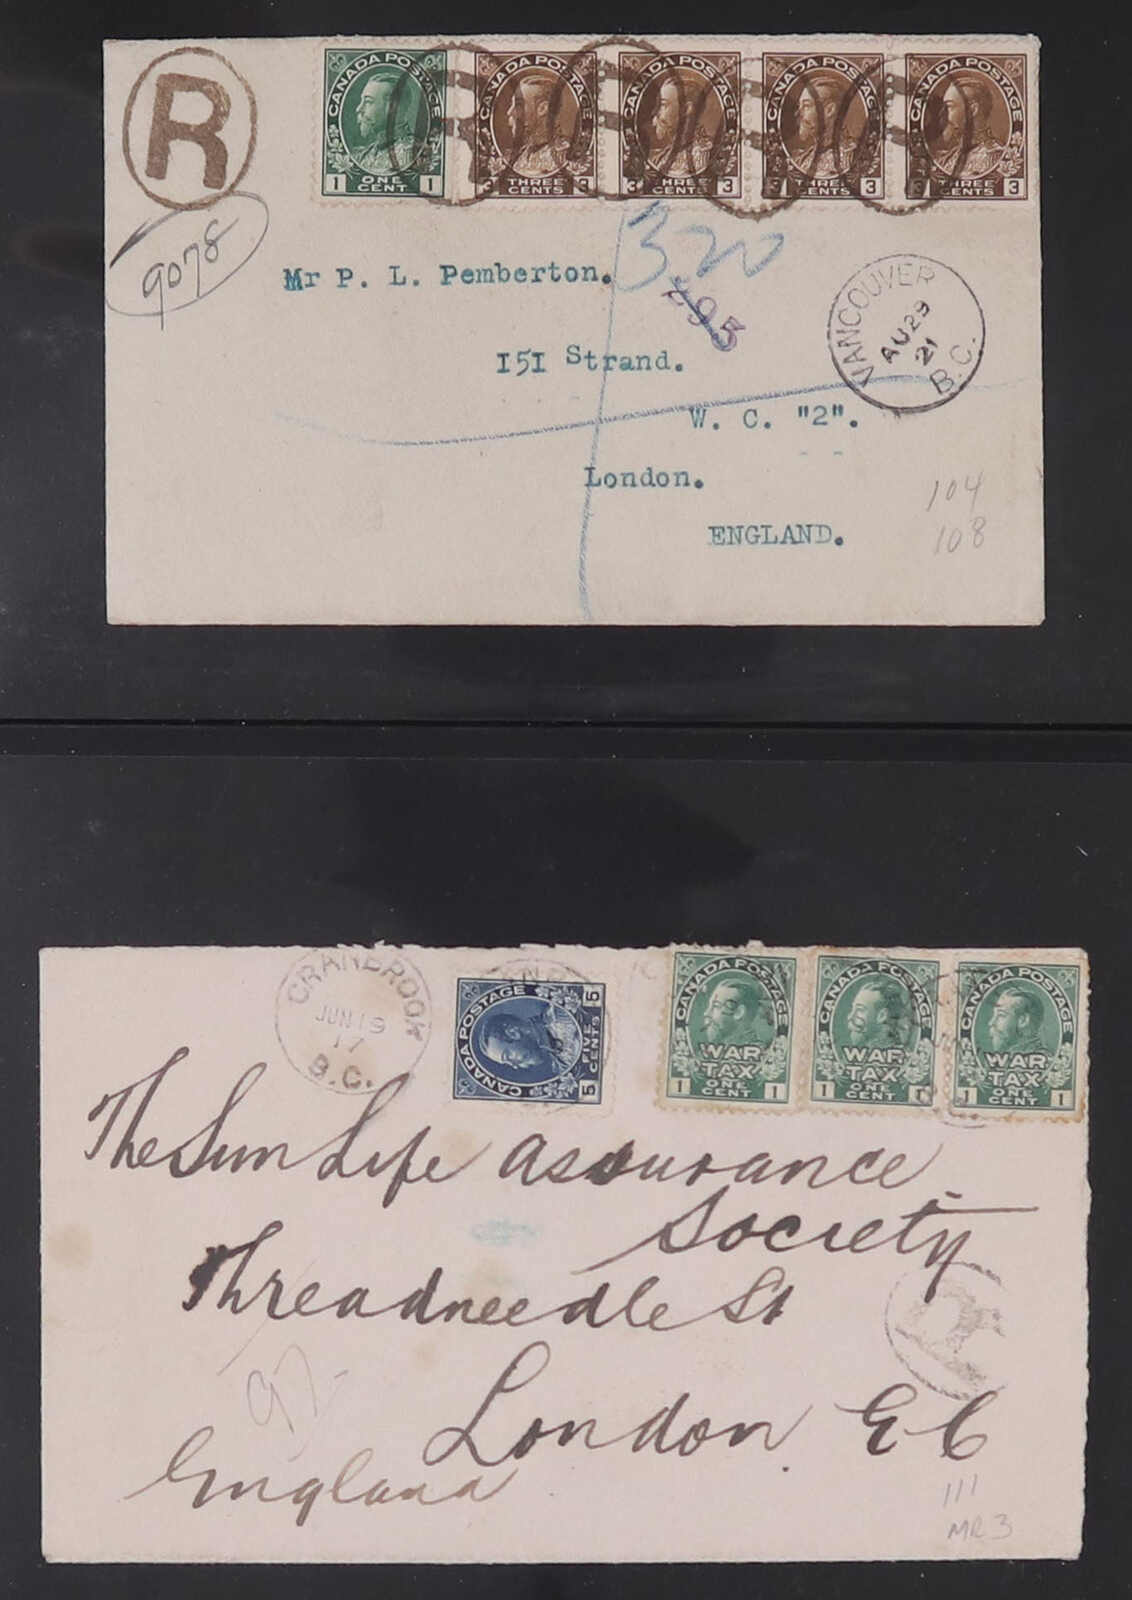 R
9078
CANADA POSTAGE
1 ONE CENT 1
CANADA POSTAGE
3 THREE CENTS 3
CANADA POSTAGE
3 THREE CENTS 3
CANADA POSTAGE
3 THREE CENTS 3
CANADA POSTAGE
3 THREE CENTS 3
3.20
295
Mr P. L. Pemberton.
151 Strand.
W. C. "2".
London.
ENGLAND.
VANCOUVER
AU 29
21
B.C.
104
108
CRANBROOK
JUN 19
17
B.C.
CANADA POSTAGE
5 FIVE CENTS 5
CANADA POSTAGE
WAR TAX
1 ONE CENT 1
CANADA POSTAGE
WAR TAX
1 ONE CENT
CANADA POSTAGE
WAR TAX
1 ONE CENT 1
The Sun Life Assurance
Society
Threadneedle St
London E C
England
R
111
MR3